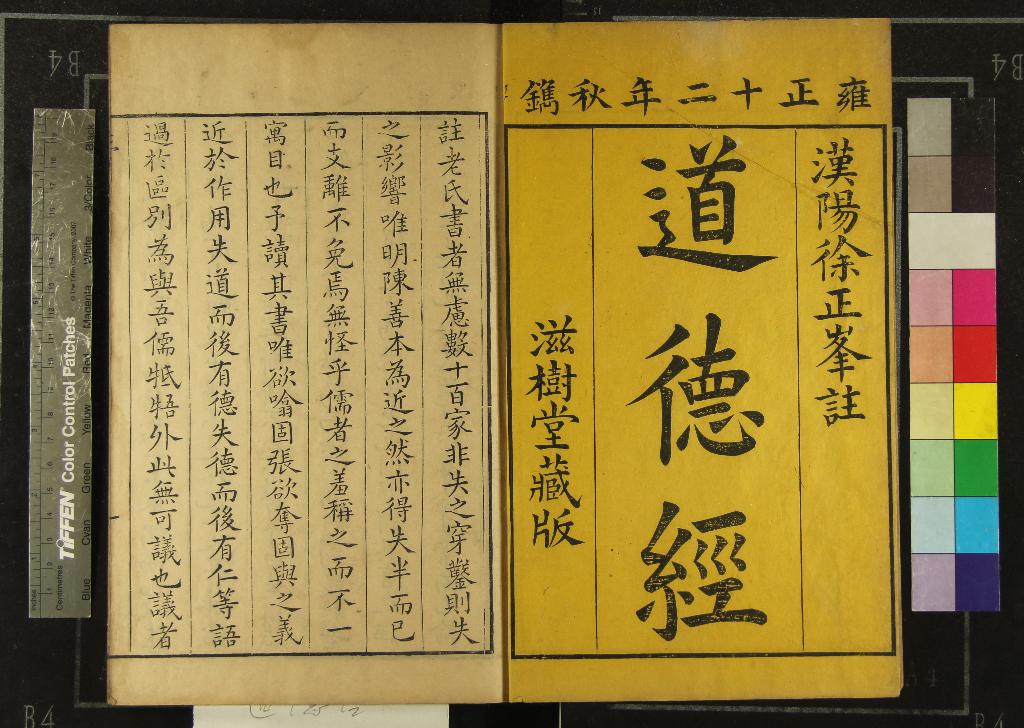 雍正十二年秋鐫
漢陽徐正峯註
道德經
滋樹堂藏版
註老氏書者無慮數十百家非失之穿鑿則失
之影響唯明陳善本為近之然亦得失半而已
而支離不免焉無怪乎儒者之羞稱之而不一
寓目也予讀其書唯欲噏固張欲奪固與之義
近於作用失道而後有德失德而後有仁等語
過於區別為與吾儒牴牾外此無可議也議者
B4
B4
B4
B4
TIFFEN Color Control Patches
© The Tiffen Company, 2007
Blue
Cyan
Green
Yellow
Red
Magenta
White
3/Color
Black
Inches
Centimetres